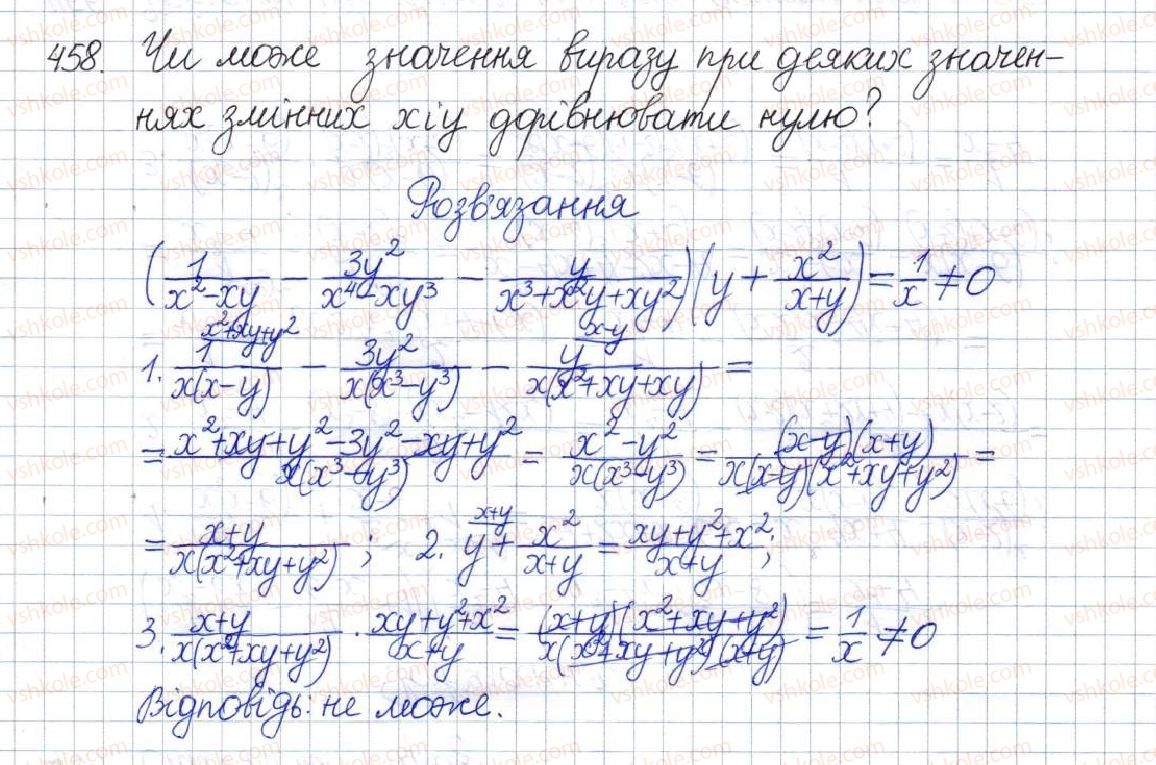 458. Чи може значення виразу при деяких значен-
нях змінних x і y дорівнювати нулю?
Розв'язання
(1/(x²-xy) - 3y²/(x⁴-xy³) - y/(x³+x²y+xy²))(y + x²/(x+y)) = 1/x ≠ 0
1. 1^(x²+xy+y²)/(x(x-y)) - 3y²/(x(x³-y³)) - y^(x-y)/(x(x²+xy+xy)) =
= (x²+xy+y²-3y²-xy+y²)/(x(x³-y³)) = (x²-y²)/(x(x³-y³)) = ((x-y)(x+y))/(x(x-y)(x²+xy+y²)) =
= (x+y)/(x(x²+xy+y²)) ; 2. y^(x+y) + x²/(x+y) = (xy+y²+x²)/(x+y);
3. (x+y)/(x(x²+xy+y²)) · (xy+y²+x²)/(x+y) = ((x+y)(x²+xy+y²))/(x(x²+xy+y²)(x+y)) = 1/x ≠ 0
Відповідь: не може.